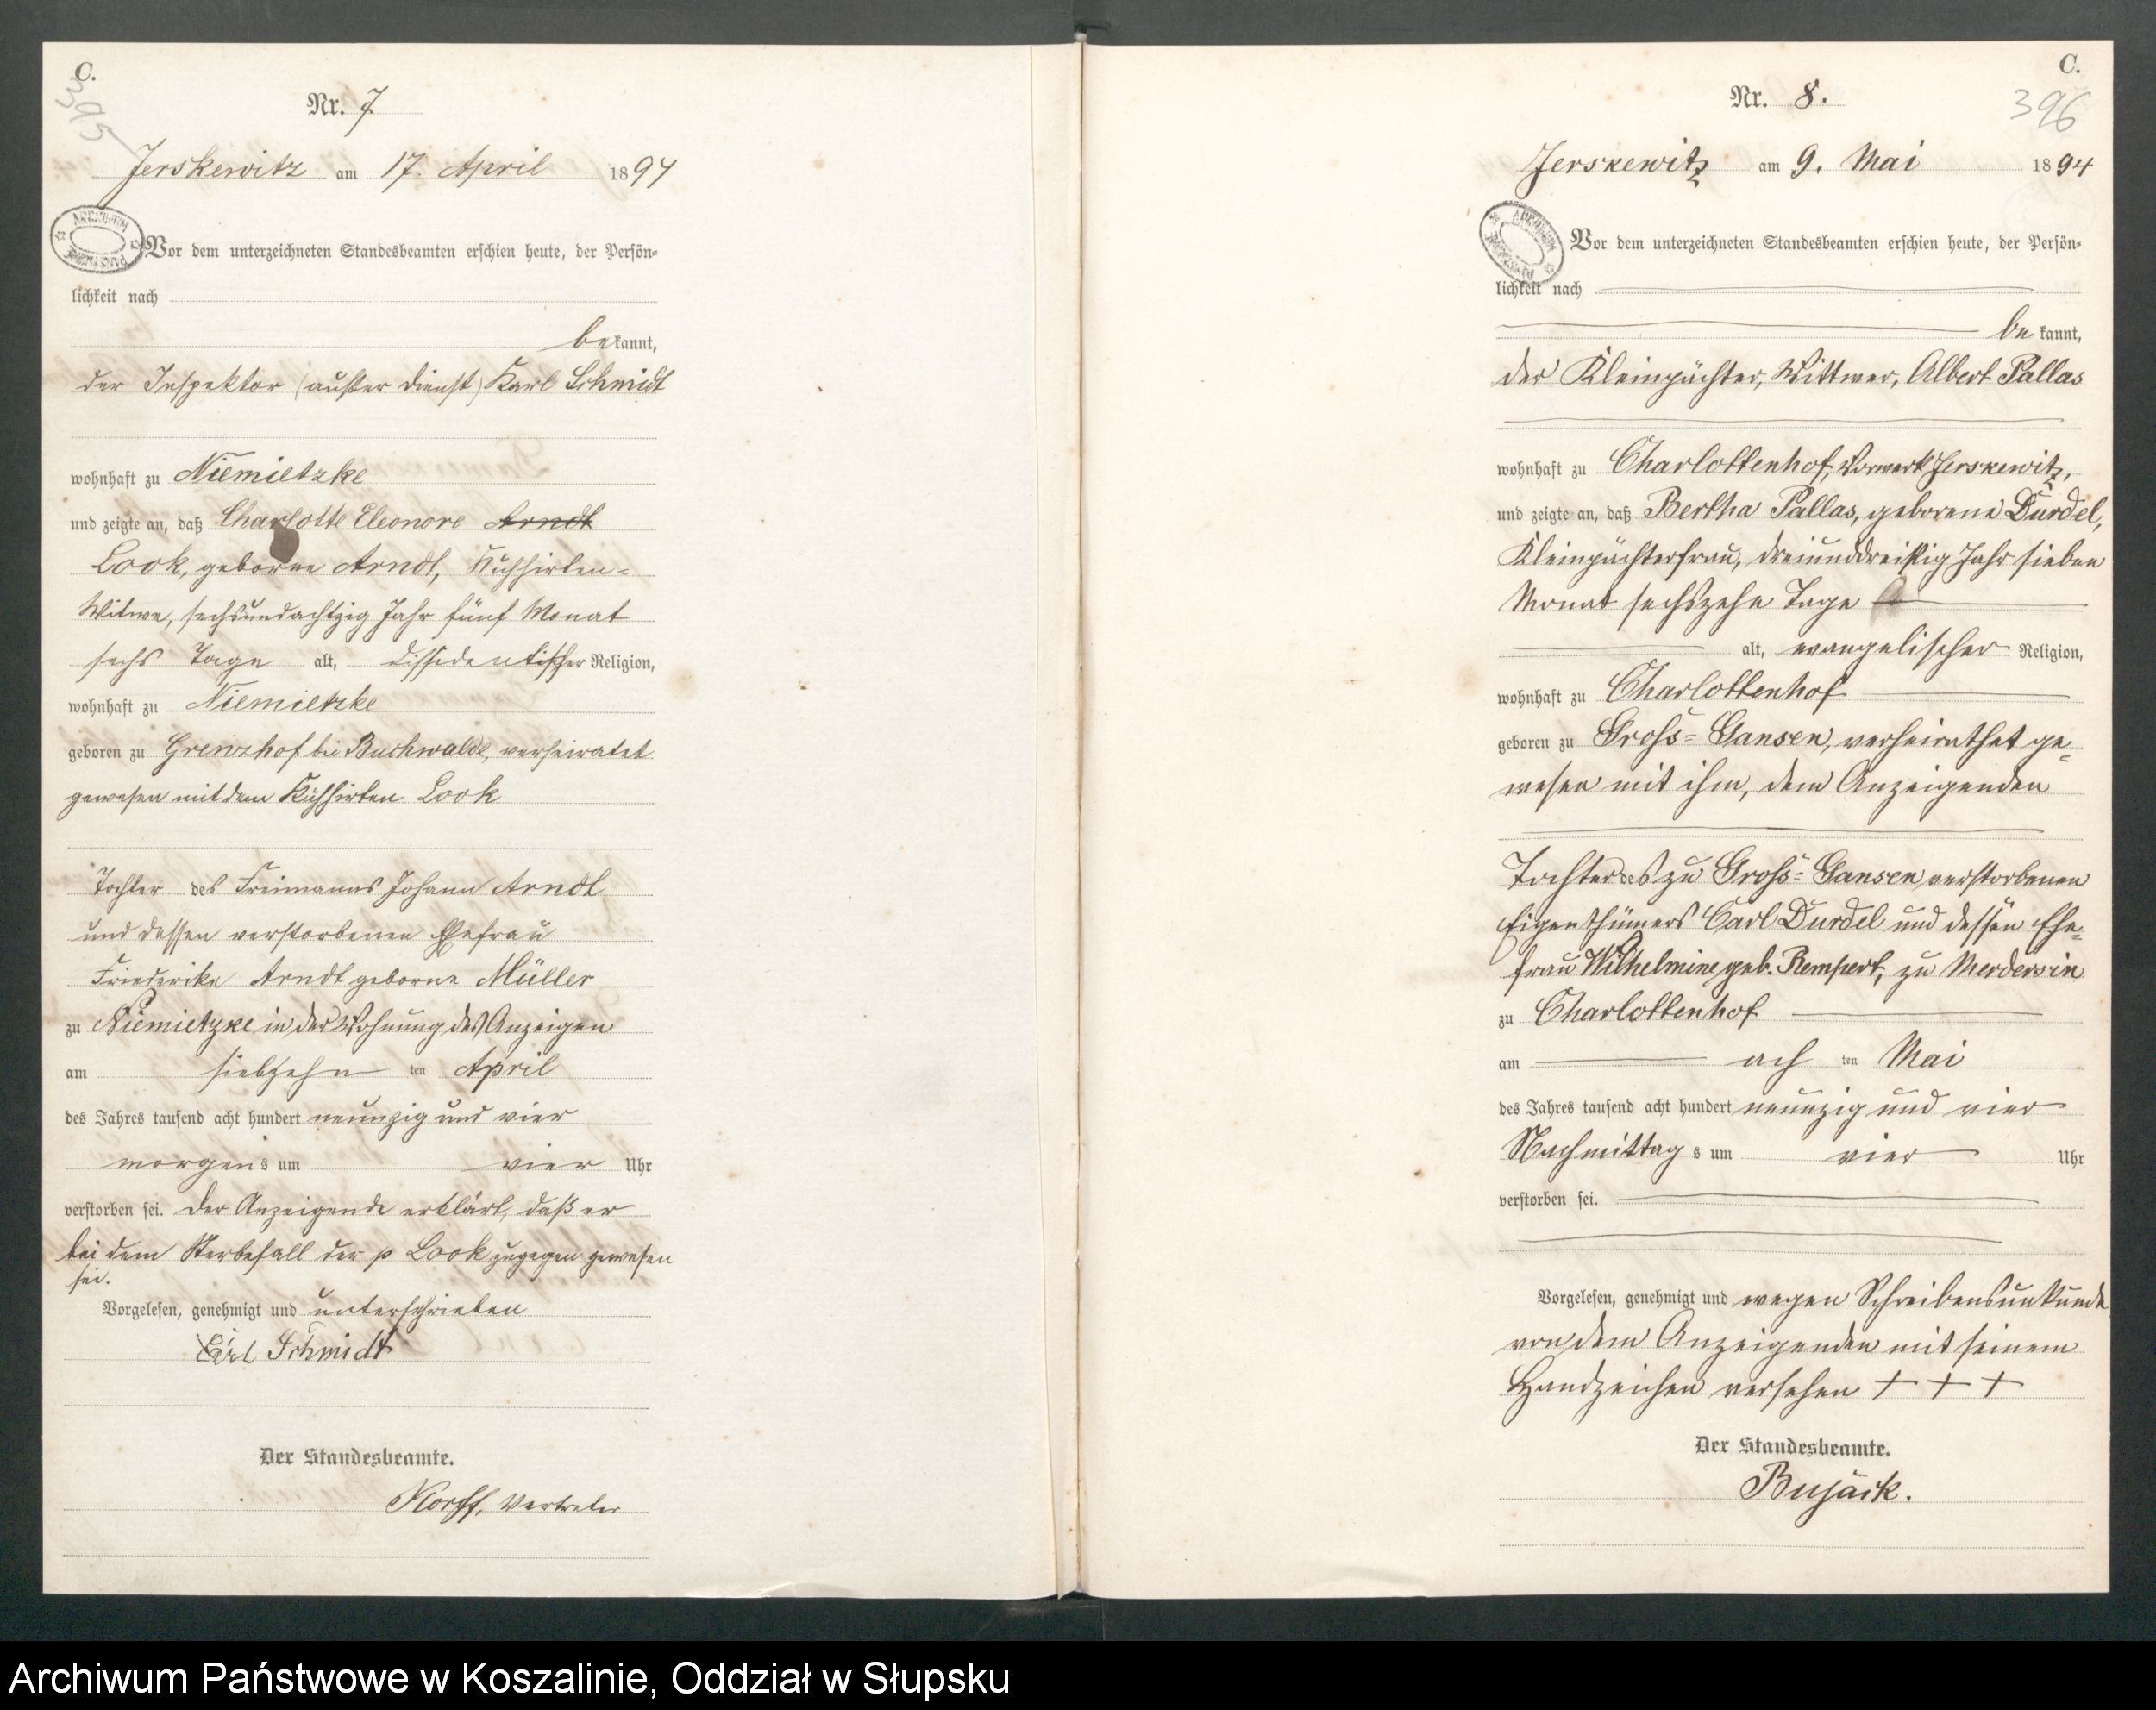 C.
395
Nr. 7.
Jerskewitz am 17. April 1894
Vor dem unterzeichneten Standesbeamten erschien heute, der Persön-
lichkeit nach
bekannt,
der Inspektor (außer Dienst) Karl Schmidt
wohnhaft zu Niemietzke
und zeigte an, daß Charlotte Eleonore Arndt
Look, geborne Arndt, Kuhhirten-
Witwe, sechsundachtzig Jahr fünf Monat
sechs Tage alt, dissidentischer Religion,
wohnhaft zu Niemietzke
geboren zu Grenzhof bei Buchwalde, verheiratet
gewesen mit dem Kuhhirten Look
Tochter des Freimanns Johann Arndt
und dessen verstorbenen Ehefrau
Friederike Arndt geborne Müller
zu Niemietzke in der Wohnung des Anzeigen
am siebzehn ten April
des Jahres tausend acht hundert neunzig und vier
morgens um vier Uhr
verstorben sei. Der Anzeigende erklärt, daß er
bei dem Sterbefall der p Look zugegen gewesen
sei.
Vorgelesen, genehmigt und unterschrieben
Carl Schmidt
Der Standesbeamte.
Korff, Vertreter
C.
396
Nr. 8.
Jerskewitz am 9. Mai 1894
Vor dem unterzeichneten Standesbeamten erschien heute, der Persön-
lichkeit nach
be kannt,
der Kleinpächter, Wittwer, Albert Pallas
wohnhaft zu Charlottenhof, Vorwerk Jerskewitz,
und zeigte an, daß Bertha Pallas, geborene Durdel,
Kleinpächterfrau, dreiunddreißig Jahr sieben
Monat sechszehn Tage
alt, evangelischer Religion,
wohnhaft zu Charlottenhof
geboren zu Gross-Gansen, verheirathet ge-
wesen mit ihm, dem Anzeigenden
Tochter des zu Gross-Gansen verstorbenen
Eigenthümers Carl Durdel und dessen Ehe-
frau Wilhelmine geb. Rempert, zu Merdersin
zu Charlottenhof
am ach ten Mai
des Jahres tausend acht hundert neunzig und vier
Nachmittag s um vier Uhr
verstorben sei.
Vorgelesen, genehmigt und wegen Schreibensunkunde
von dem Anzeigenden mit seinem
Handzeichen versehen + + +
Der Standesbeamte.
Bujack.
Archiwum Państwowe w Koszalinie, Oddział w Słupsku